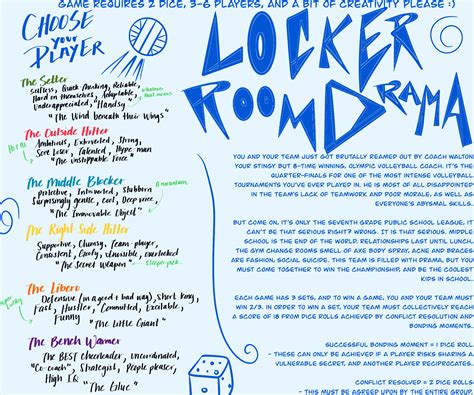 GAME REQUIRES 2 DICE, 3-6 PLAYERS, AND A BIT OF CREATIVITY PLEASE :)
CHOOSE
your
PLAYER
The Setter
Selfless, Quick thinking, Reliable,
Hard on themselves, Adaptable,
Underappreciated, "Handsy"
whatever that means
"The Wind beneath their Wings"
The Outside Hitter
Ambitious, Extroverted, Strong,
Sore Loser, Talented, Hype man
"The Unstoppable Force"
The Middle Blocker
Introverted, Stubborn
Surprisingly gentle, Cool, Deep voice,
"The Immovable Object"
The Right Side Hitter
Supportive, Clumsy, Team player,
Consistent, Comfy, Invisible, overlooked
"The Secret Weapon"
The Libero
Defensive (in a good + bad way), Short King,
Fast, Hustler, Committed, Excitable,
Funny
"The Little Giant"
The Bench Warmer
The BEST cheerleader, uncoordinated,
"Co-coach", Strategist, People pleaser,
High I.Q
"The Glue"
LOCKER
ROOM DRAMA
YOU AND YOUR TEAM JUST GOT BRUTALLY REAMED OUT BY COACH WALTON
YOUR STINGY BUT 8-TIME WINNING, OLYMPIC VOLLEYBALL COACH. IT'S THE
QUARTER-FINALS FOR ONE OF THE MOST INTENSE VOLLEYBALL
TOURNAMENTS YOU'VE EVER PLAYED IN. HE IS MOST OF ALL DISAPPOINTED
IN THE TEAM'S LACK OF TEAMWORK AND POOR MORALE, AS WELL AS
EVERYONE'S ABYSMAL SKILLS.
BUT COME ON, IT'S ONLY THE SEVENTH GRADE PUBLIC SCHOOL LEAGUE, IT
CAN'T BE THAT SERIOUS RIGHT? WRONG. IT IS THAT SERIOUS. MIDDLE
SCHOOL IS THE END OF THE WORLD. RELATIONSHIPS LAST UNTIL LUNCH,
THE GYM CHANGE ROOMS SMELL OF AXE BODY SPRAY, ACNE AND BRACES
ARE FASHION, SOCIAL SUICIDE. THIS TEAM IS FILLED WITH DRAMA, BUT YOU
MUST COME TOGETHER TO WIN THE CHAMPIONSHIP, AND BE THE COOLEST
KIDS IN SCHOOL.
EACH GAME HAS 3 SETS, AND TO WIN A GAME, YOU AND YOUR TEAM MUST
WIN 2/3. IN ORDER TO WIN A SET, YOUR TEAM MUST COLLECTIVELY REACH
A SCORE OF 18 FROM DICE ROLLS ACHIEVED BY CONFLICT RESOLUTION AND
BONDING MOMENTS.
SUCCESSFUL BONDING MOMENT = 1 DICE ROLL
- THESE CAN ONLY BE ACHIEVED IF A PLAYER RISKS SHARING A
VULNERABLE SECRET, AND ANOTHER PLAYER RECIPROCATES.
CONFLICT RESOLVED = 2 DICE ROLLS
- THIS MUST BE AGREED UPON BY THE ENTIRE GROUP.